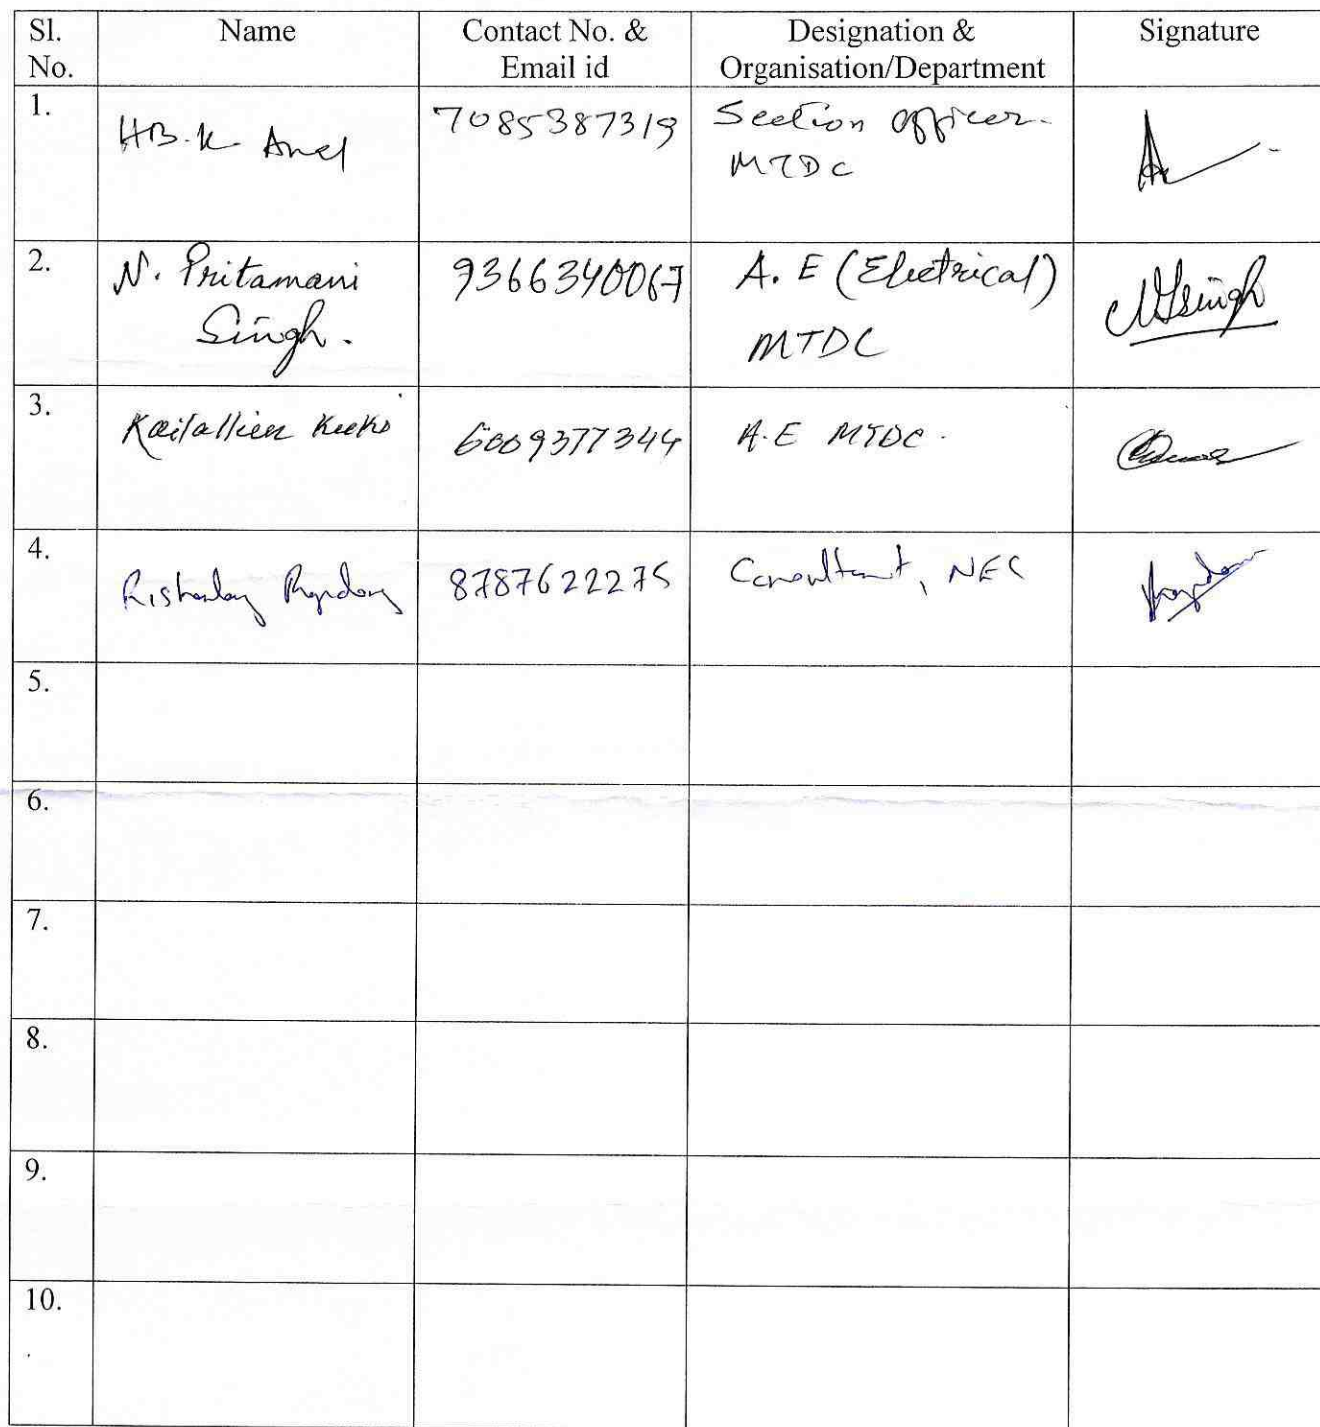 Sl. No.
Name
Contact No. & Email id
Designation & Organisation/Department
Signature
1.
HB. K
7085387319
Section officer.
MTDC
2.
N. Pritamani
Singh.
9366340067
A. E (Electrical)
MTDC
3.
6009377344
A.E MTDC.
4.
8787622275
Consultant, NEC
5.
6.
7.
8.
9.
10.